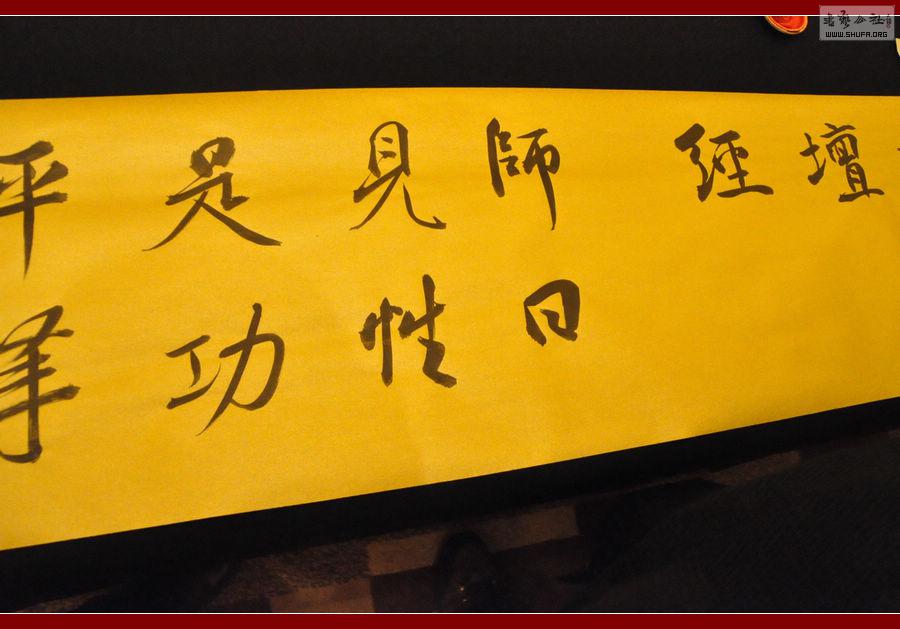 壇
經
師曰
見性
是功
平等
書藝公社
WWW.SHUFA.ORG